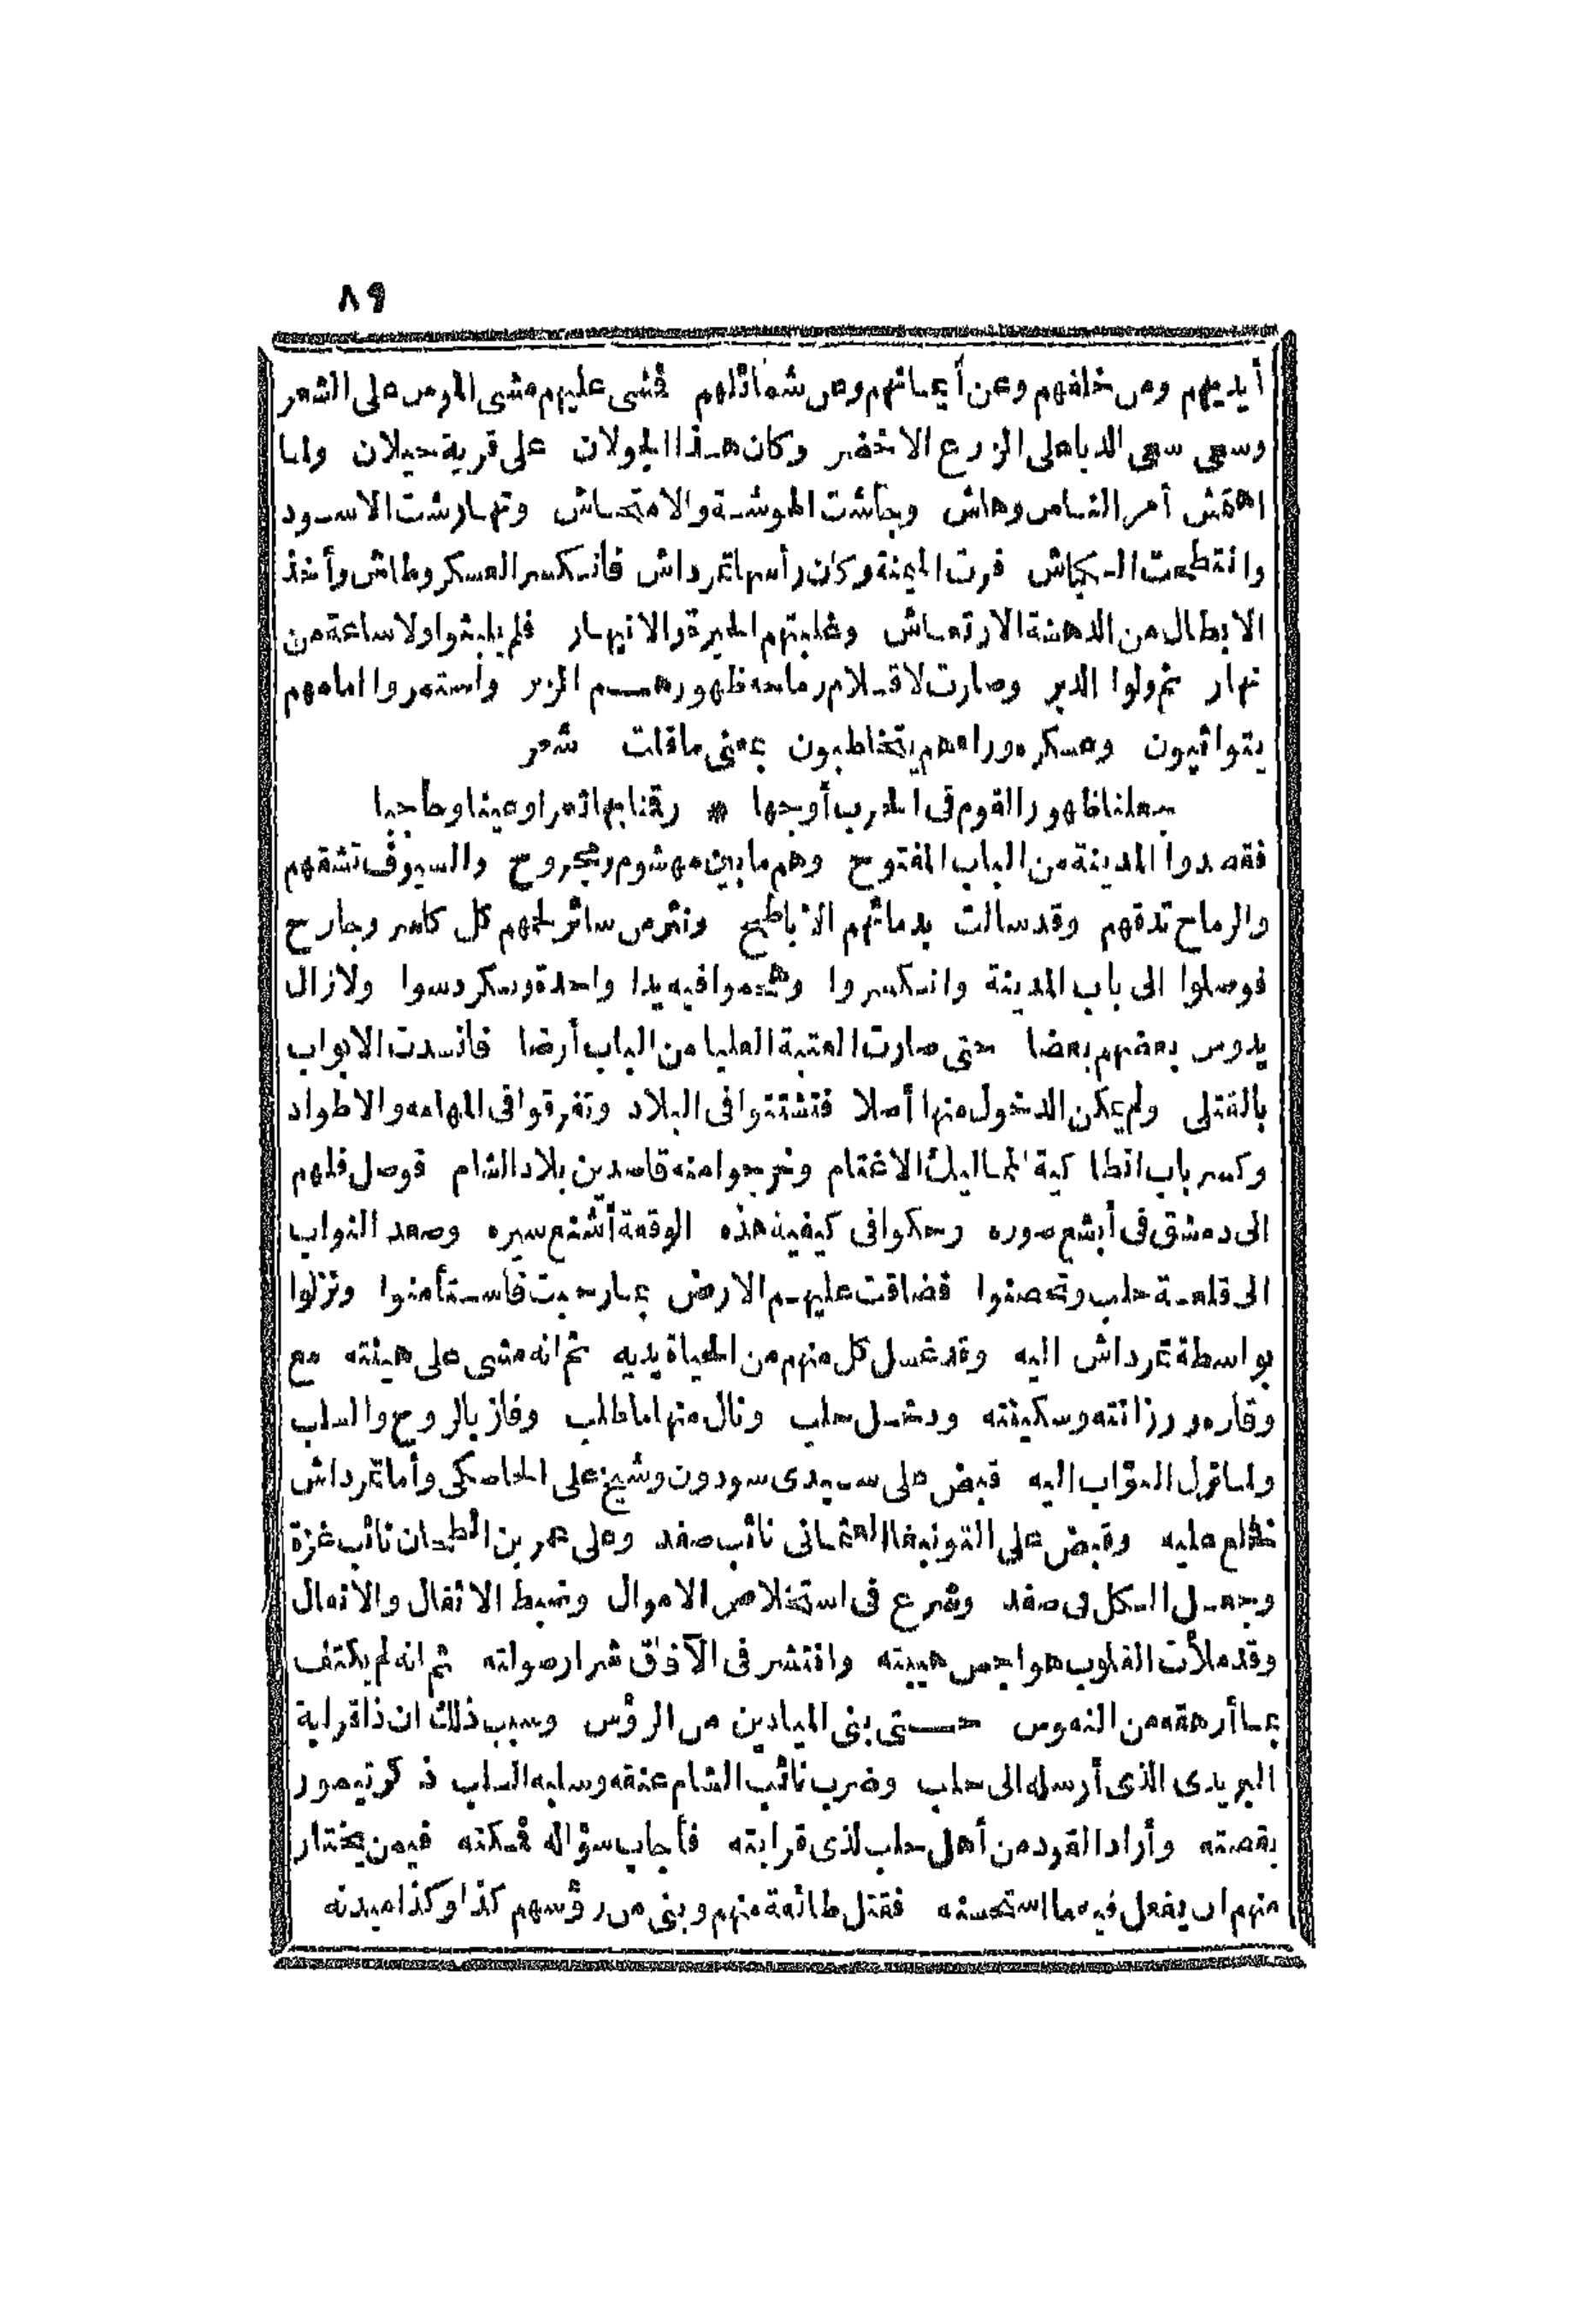 ٨٩
أيديهم ومن خلفهم وعن أيمانهم وعن شمائلهم فمشى عليهم مشى الموسى على الشعر
وسعى سعى الدبا على الزرع الاخضر وكان هذا الجولان على قرية حيلان ولما
اهتمش أمر الناس وهاش وجاشت الهوشة والامتحاش وتهارشت الاسود
وانتطحت الكباش فرت الميمنة وكان رأسها تمرداش فانكسر العسكر وطاش وأخذ
الابطال من الدهشة الارتعاش وغلبتهم الحيرة والانبهار فلم يلبثوا ولا ساعة من
نهار ثم ولوا الدبر وصارت لاقلام رماحه ظهورهم الزبر واستمروا امامهم
يتواثبون وعسكره وراءهم يتخاطبون بمعنى ما قلت شعر
جعلنا ظهور القوم فى الحرب أوجها * رقنا بها ثغرا وعينا وحاجبا
فقصدوا المدينة من الباب المفتوح وهم ما بين مهشوم ومجروح والسيوف تشقهم
والرماح تدقهم وقد سالت بدمائهم الاباطح ونثر من سائر لحمهم كل كاسر وجارح
فوصلوا الى باب المدينة وانكسروا وهجموا فيه يدا واحدة وتكردسوا ولا زال
يدوس بعضهم بعضا حتى صارت العتبة العليا من الباب أرضا فانسدت الابواب
بالقتلى ولم يمكن الدخول منها أصلا فتشتتوا فى البلاد وتفرقوا فى المهامه والاطواد
وكسر باب انطاكية المماليك الاغتام وخرجوا منه قاصدين بلاد الشام فوصل فلهم
الى دمشق فى أبشع صوره وحكوا فى كيفية هذه الوقعة أشنع سيره وصعد النواب
الى قلعة حلب وتحصنوا فضاقت عليهم الارض بما رحبت فاستأمنوا ونزلوا
بواسطة تمرداش اليه وقد غسل كل منهم من الحياة يديه ثم انه مشى على هينته مع
وقاره ورزانته وسكينته ودخل حلب ونال منها ما طلب وفاز بالروح والسلب
ولما نزل النواب اليه قبض على سيدى سودون وشيخ على الخاصكى وأما تمرداش
فخلع عليه وقبض على التونبغا العثمانى نائب صفد وعلى عمر بن الطحان نائب غزة
وجعل الكل فى صفد وشرع فى استخلاص الاموال وضبط الاثقال والانفال
وقد ملأت القلوب هواجس هيبته وانتشر فى الآفاق شرار صولته ثم انه لم يكتف
بما أرهقه من النفوس حتى بنى الميادين من الرؤس وسبب ذلك ان ذا قرابة
البريدى الذى أرسله الى حلب وضرب نائب الشام عنقه وسلبه السلب ذكر تيمور
بقصته وأراد القود من أهل حلب لذى قرابته فأجاب سؤاله فمكنه فيمن يختار
منهم ان يفعل فيه ما استحسنه فقتل طائفة منهم وبنى من رؤسهم كذا وكذا ميدنه